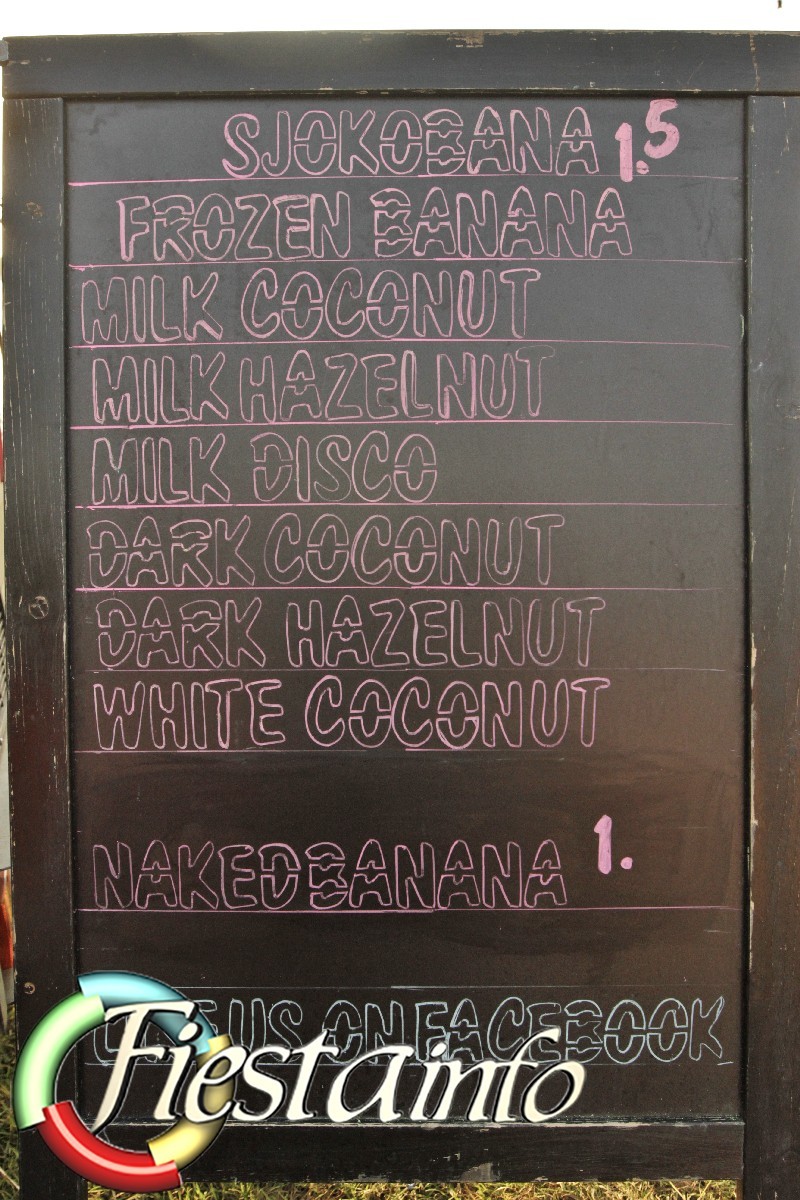 SJOKOBANA 1.5
FROZEN BANANA
MILK COCONUT
MILK HAZELNUT
MILK DISCO
DARK COCONUT
DARK HAZELNUT
WHITE COCONUT
NAKED BANANA 1.
US ON FACEBOOK
Fiestainfo